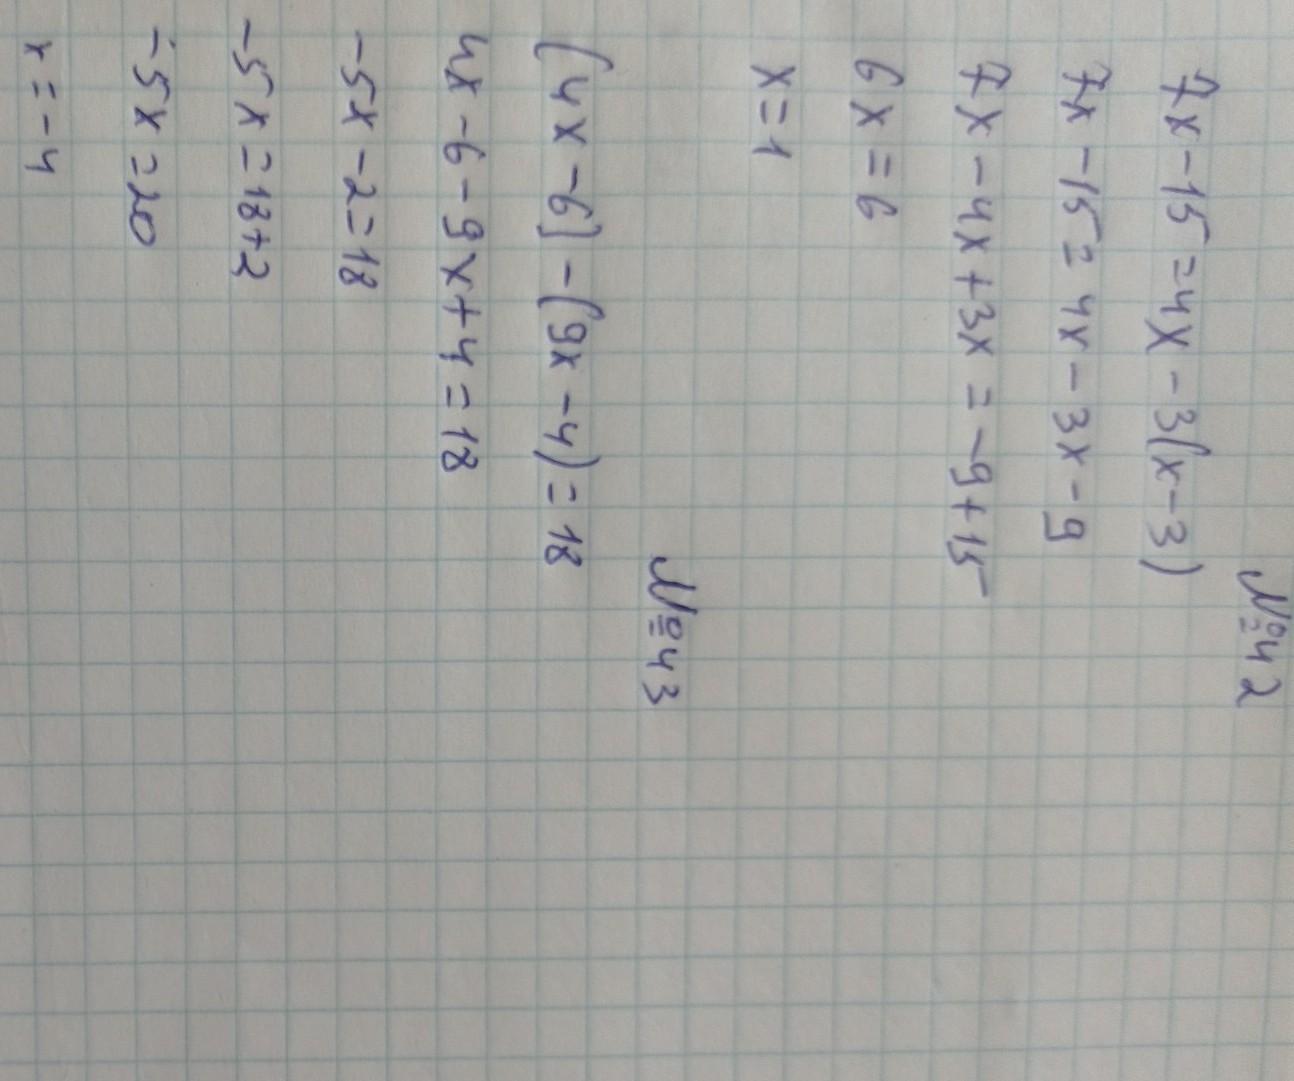 №42
7x-15=4x-3(x-3)
7x-15=4x-3x-9
7x-4x+3x=-9+15
6x=6
x=1
№43
(4x-6)-(9x-4)=18
4x-6-9x+4=18
-5x-2=18
-5x=18+2
-5x=20
x=-4